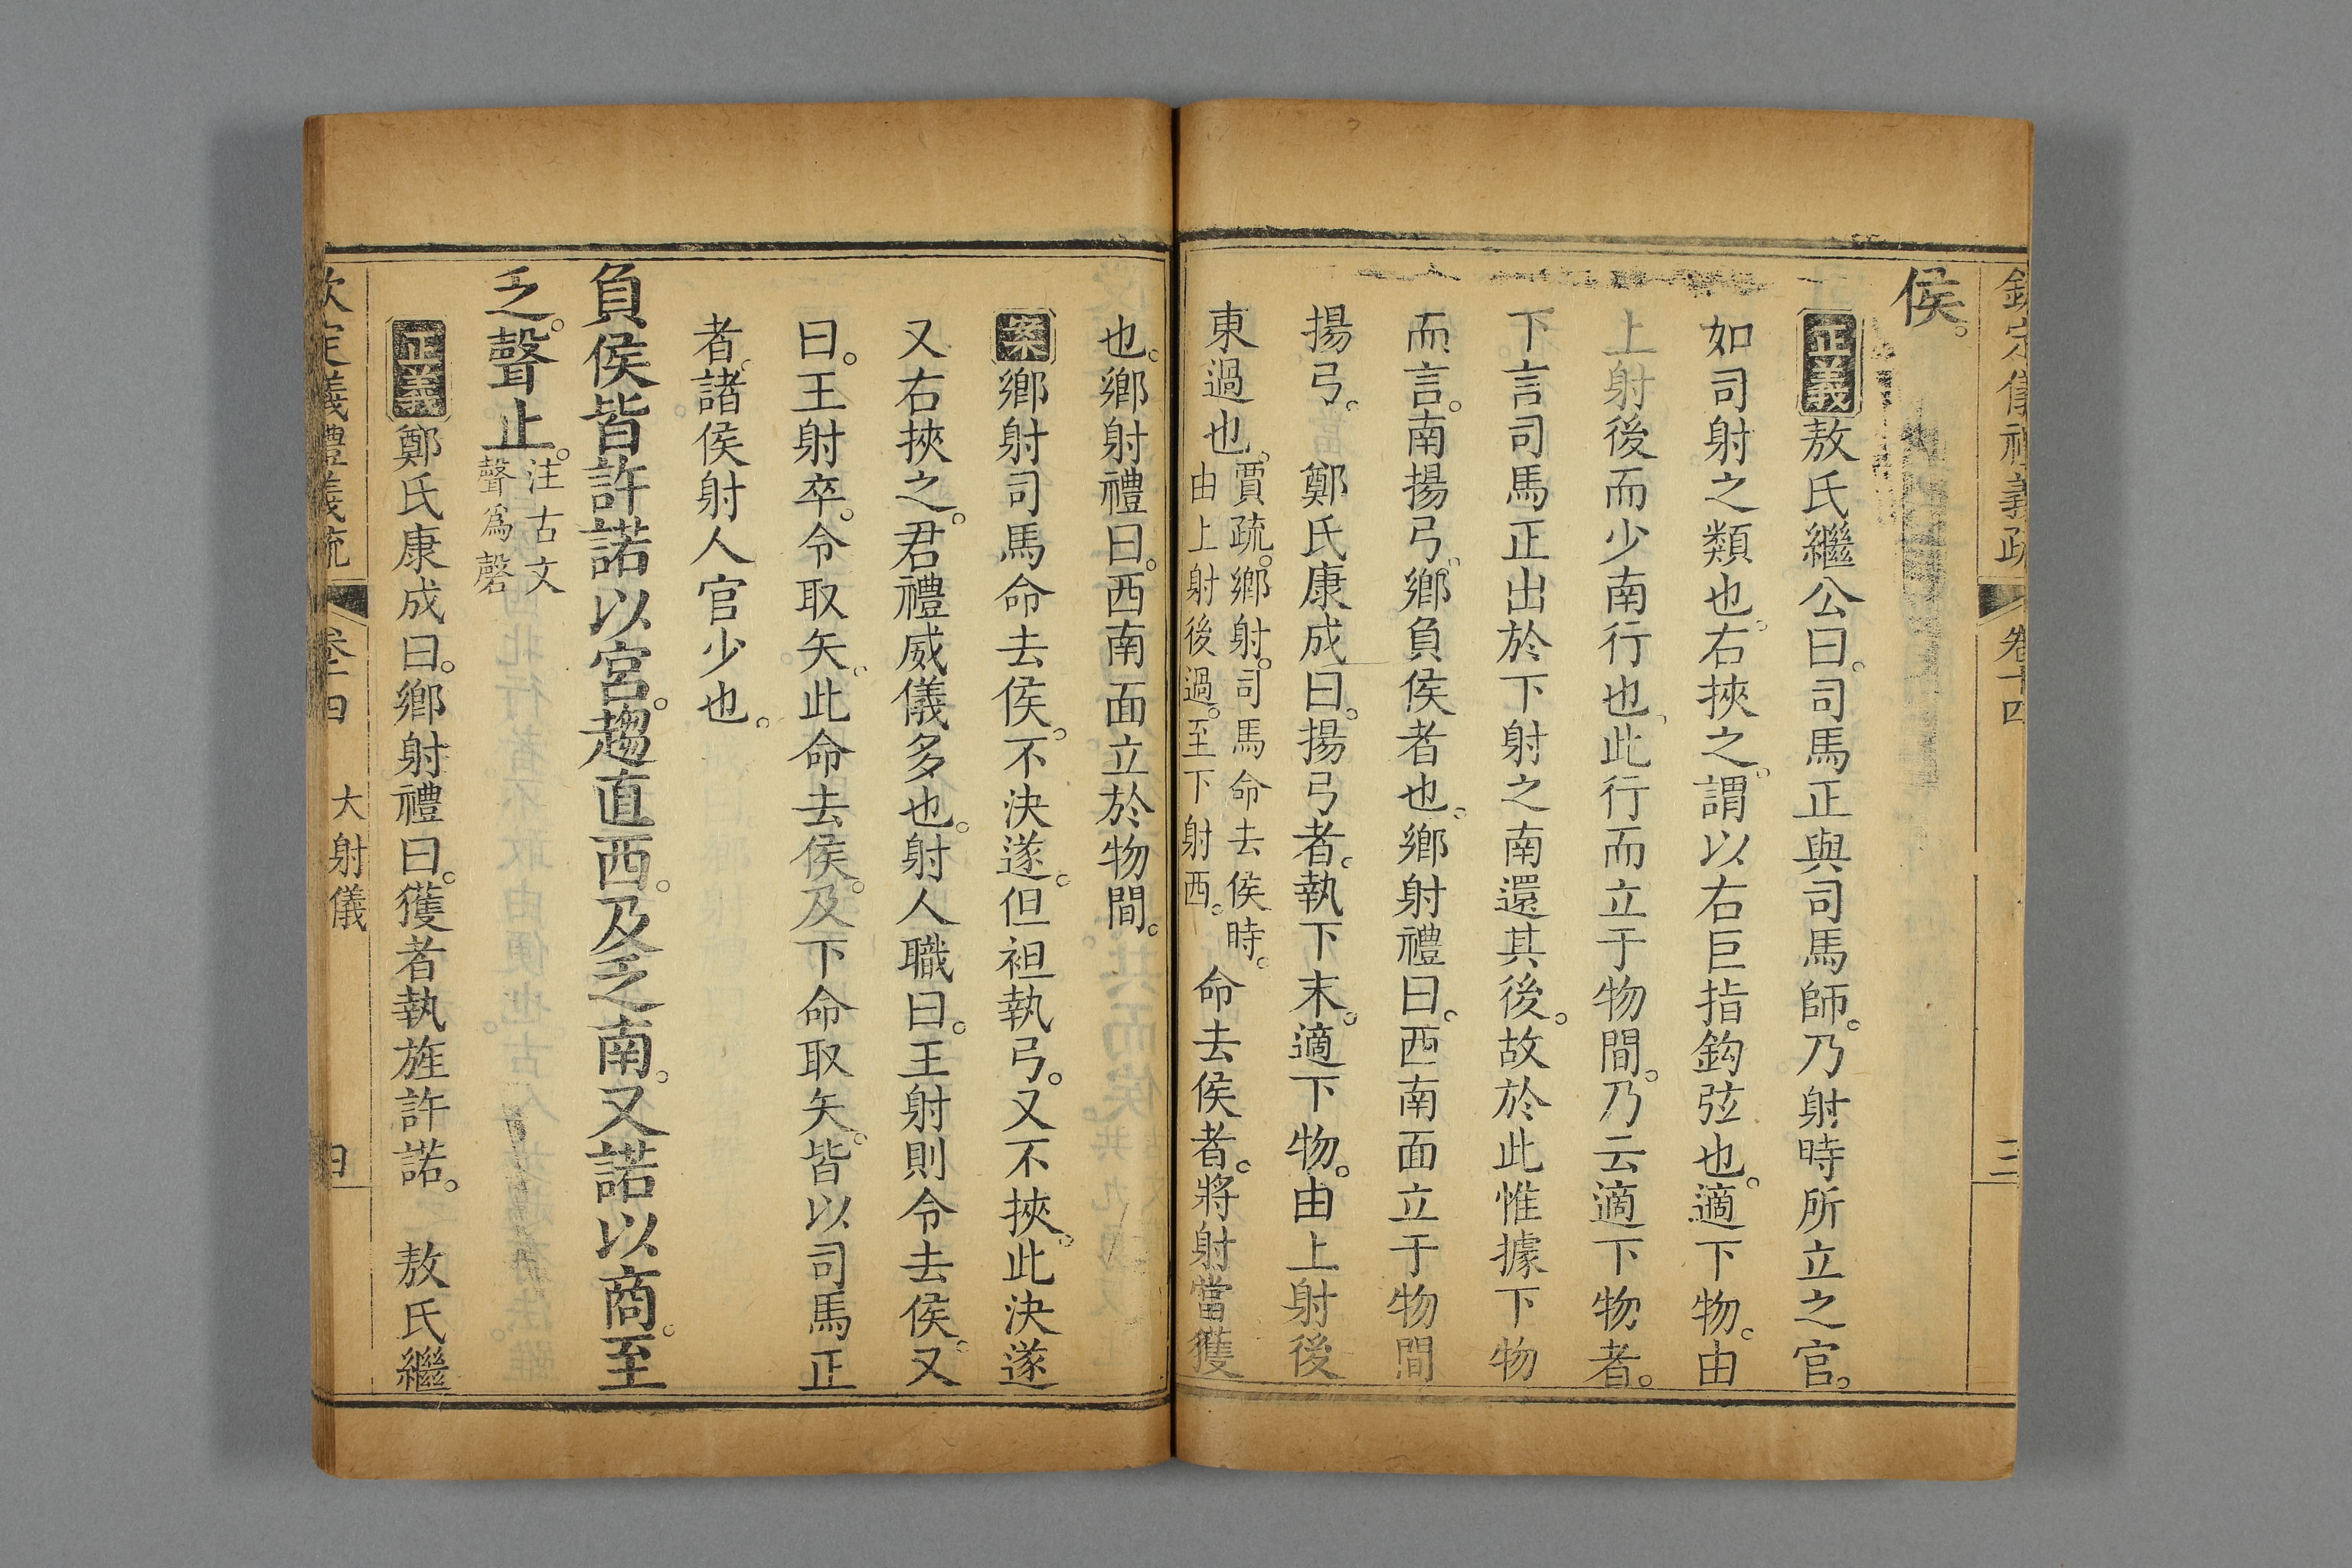 欽定儀禮義疏 卷十四 三
侯。
正義敖氏繼公曰。司馬正與司馬師。乃射時所立之官。
如司射之類也。右挾之。謂以右巨指鉤弦也。適下物。由
上射後而少南行也。此行而立于物間。乃云適下物者。
下言司馬正出於下射之南還其後。故於此惟據下物
而言。南揚弓。鄉負侯者也。鄉射禮曰。西南面立于物間
揚弓。 鄭氏康成曰。揚弓者。執下末。適下物。由上射後
東過也。賈疏。鄉射。司馬命去侯時。由上射後過。至下射西。命去侯者。將射當獲
也。鄉射禮曰。西南面立於物間。
案鄉射司馬命去侯。不決遂。但袒執弓。又不挾。此決遂
又右挾之。君禮威儀多也。射人職曰。王射則令去侯。又
曰。王射卒。令取矢。此命去侯。及下命取矢。皆以司馬正
者。諸侯射人官少也。
負侯皆許諾以宮。趨直西。及乏南。又諾以商。至
乏。聲止。注古文聲爲磬
正義鄭氏康成曰。鄉射禮曰。獲者執旌許諾。 敖氏繼
欽定儀禮義疏 卷十四 大射儀 四